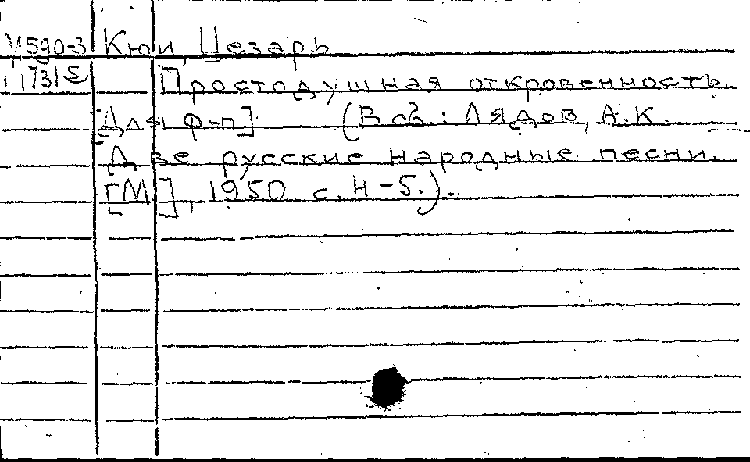 М590-3 Кюи, Цезарь
Простодушная откровенность.
[Для ф-п] (В сб: Лядов, А.К.
Две русские народные песни.
[М], 1950 с. 4-5.).